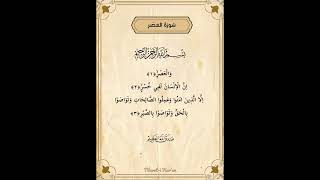 سُورَةُ العَصْر
بِسْمِ اللَّهِ الرَّحْمَٰنِ الرَّحِيمِ
وَالْعَصْرِۙ ﴿١﴾
اِنَّ الْاِنْسَانَ لَفٖي خُسْرٍۙ ﴿٢﴾
اِلَّا الَّذٖينَ اٰمَنُوا وَعَمِلُوا الصَّالِحَاتِ وَتَوَاصَوْا
بِالْحَقِّ وَتَوَاصَوْا بِالصَّبْرِ ﴿٣﴾